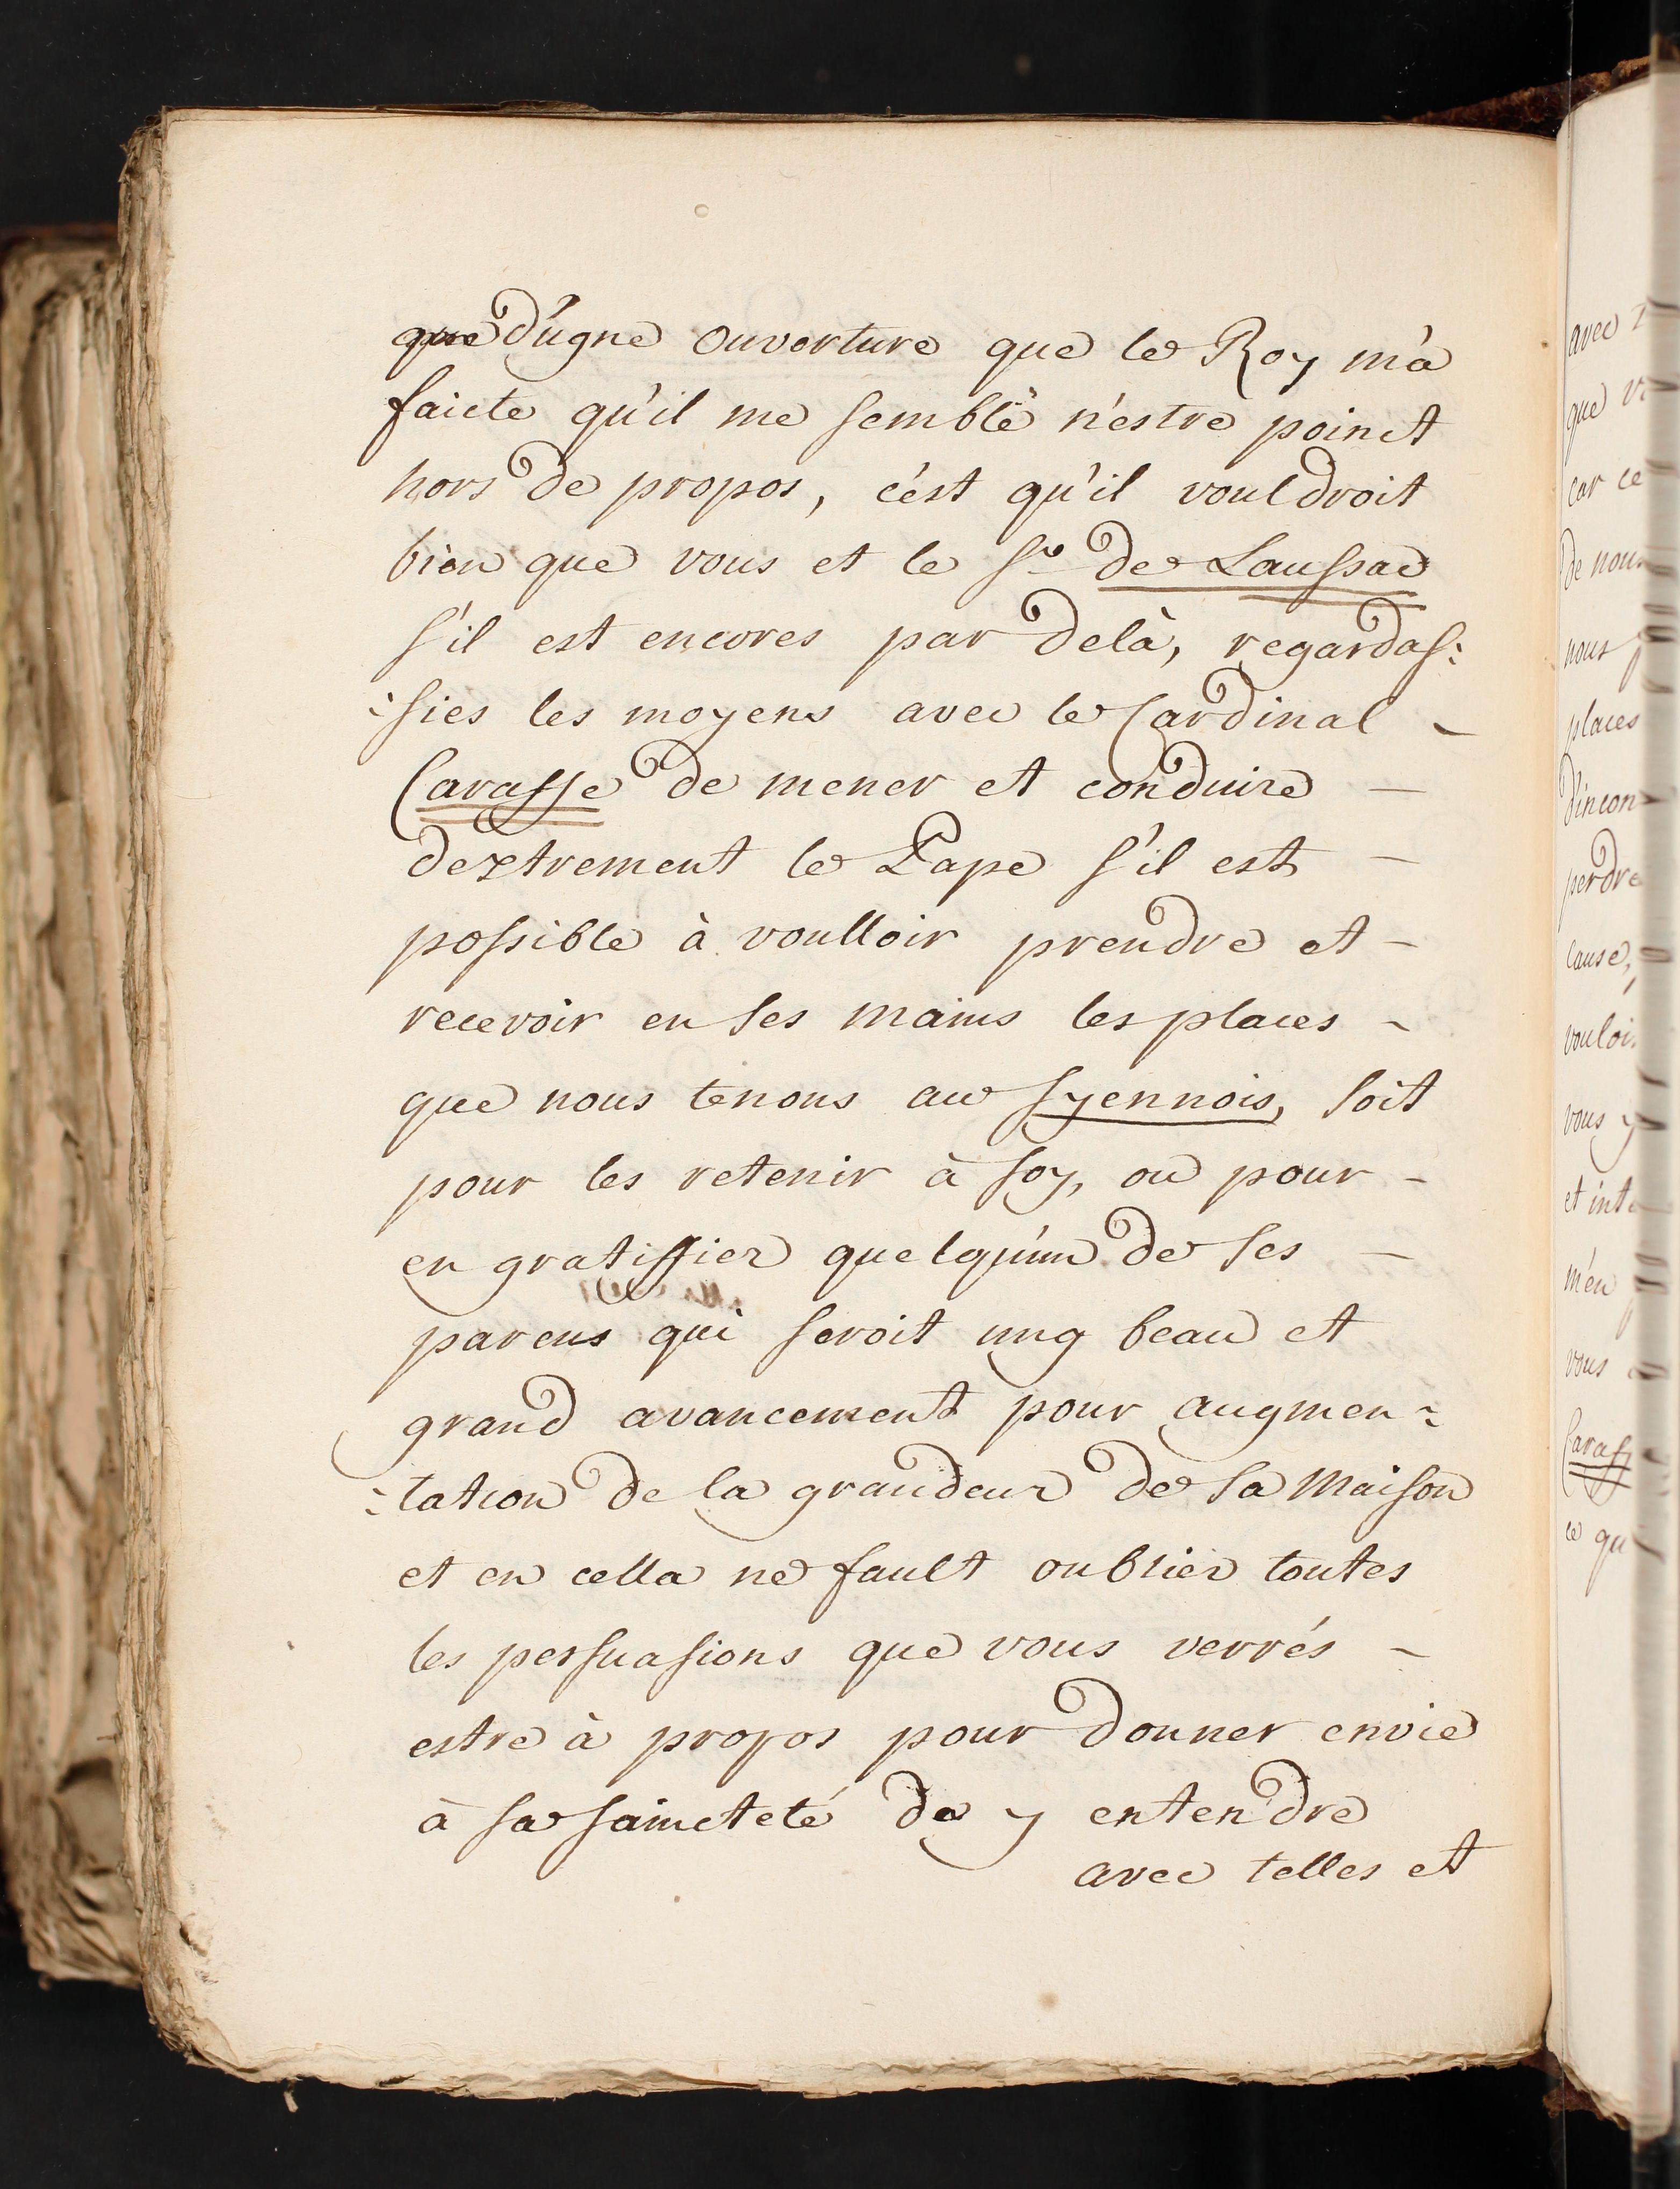 que d'ugne ouverture que le Roy m'a
faicte qu'il me semble n'estre poinct
hors de propos, c'est qu'il vouldroit
bien que vous et le Sr de Laussac
s'il est encores par delà, regardas:
:sies les moyens avec le Cardinal
Caraffe de mener et conduire
dextrement le Pape s'il est
possible à voulloir prendre et
recevoir en ses mains les places
que nous tenons au Syennois, soit
pour les retenir à soy, ou pour
en gratiffier quelqu'un de ses
parens qui seroit ung beau et
grand avancement pour augmen:
:tation de la grandeur de sa Maison
et en cella ne fault oublier toutes
les persuasions que vous verrés
estre à propos pour donner envie
à sa saincteté de y entendre
avec telles et
avec
que
car ce
de nous
nous
places
d'incon
perdre
cause,
vouloir
vous y
et inte
m'en
vous
Caraff
ce qu